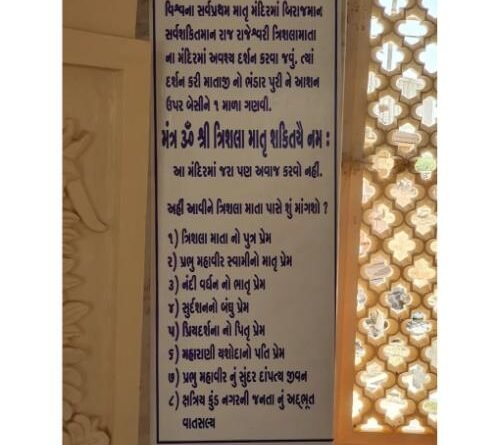 વિશ્વના સર્વપ્રથમ માતૃ મંદિરમાં બિરાજમાન
સર્વશકિતમાન રાજ રાજેશ્વરી ત્રિશલામાતા
ના મંદિરમાં અવશ્ય દર્શન કરવા જવું. ત્યાં
દર્શન કરી માતાજી નો ભંડાર પુરી ને આશન
ઉપર બેસીને ૧ માળા ગણવી.
મંત્ર ૐ શ્રી ત્રિશલા માતૃ શકિતયૈ નમ :
આ મંદિરમાં જરા પણ અવાજ કરવો નહીં.
અહીં આવીને ત્રિશલા માતા પાસે શું માંગશો ?
૧) ત્રિશલા માતા નો પુત્ર પ્રેમ
૨) પ્રભુ મહાવીર સ્વામીનો માતૃ પ્રેમ
૩) નંદી વર્ધન નો ભાતૃ પ્રેમ
૪) સુર્દશનનો બંધુ પ્રેમ
૫) પ્રિયદર્શના નો પિતૃ પ્રેમ
૬) મહારાણી યશોદાનો પતિ પ્રેમ
૭) પ્રભુ મહાવીર નું સુંદર દાંપત્ય જીવન
૮) ક્ષત્રિય કુંડ નગરની જનતા નું અદ્ભૂત
વાતસલ્ય